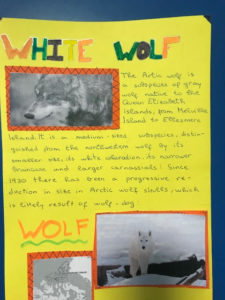 WHITE WOLF
The Artic wolf is
a subspecies of gray
wolf native to the
Queen Elizabeth
Islands, from Melville
Island to Ellesmere
Island. It is a medium-sized subspecies, distin-
guished from the northwestern wolf by its
smaller size, its white coloration, its narrower
braincase and larger carnassials. Since
1930 there has been a progressive re-
duction in size in Arctic wolf skulls, which
is likely result of wolf-dog.
WOLF